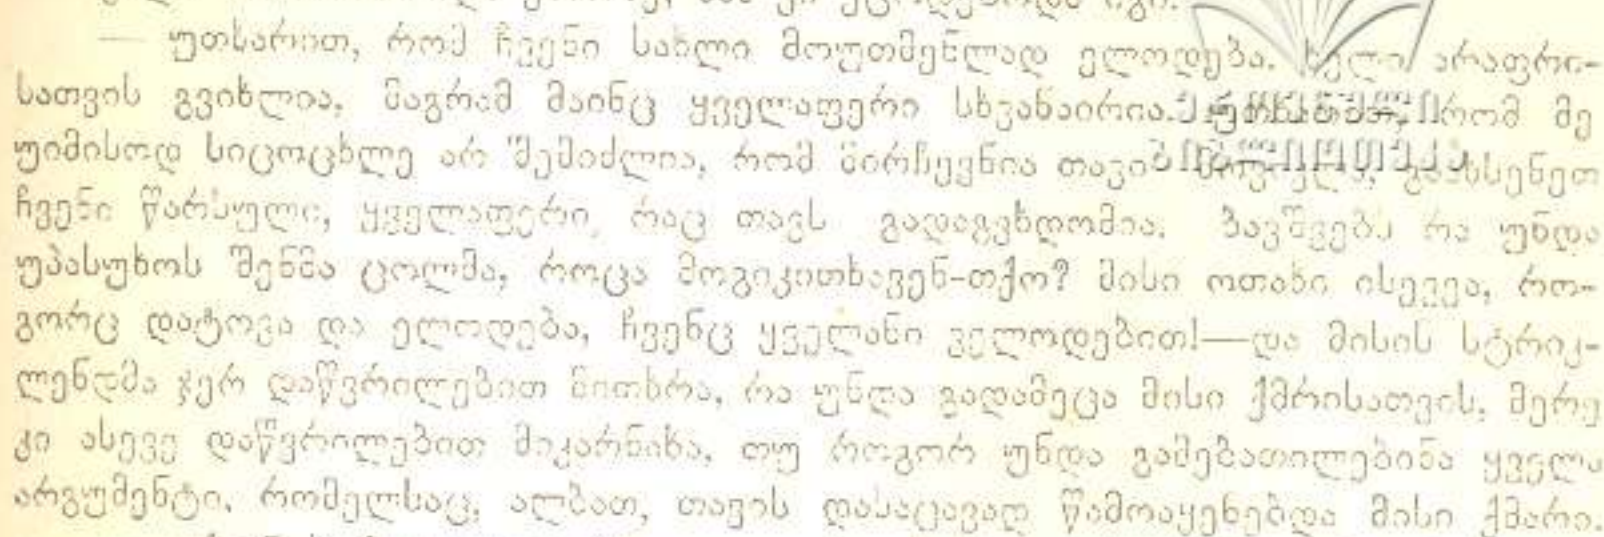 — უთხარით, რომ ჩვენი სახლი მოუთმენლად ელოდება. ხელი არაფრი-
სათვის გვიხლია, მაგრამ მაინც ყველაფერი სხვანაირია. რომ მე
უიმისოდ სიცოცხლე არ შემიძლია, რომ მირჩევნია თავი გაახსენეთ
ჩვენი წარსული, ყველაფერი, რაც თავს გადაგვხდომია. ბავშვებს რა უნდა
უპასუხოს შენმა ცოლმა, როცა მოგიკითხავენ-თქო? მისი ოთახი ისევეა, რო-
გორც დატოვა და ელოდება, ჩვენც ყველანი ველოდებით!—და მისის სტრიკ-
ლენდმა ჯერ დაწვრილებით მითხრა, რა უნდა გადამეცა მისი ქმრისათვის, მერე
კი ასევე დაწვრილებით მიკარნახა, თუ როგორ უნდა გამებათილებინა ყველა
არგუმენტი, რომელსაც, ალბათ, თავის დასაცავად წამოაყენებდა მისი ქმარი.